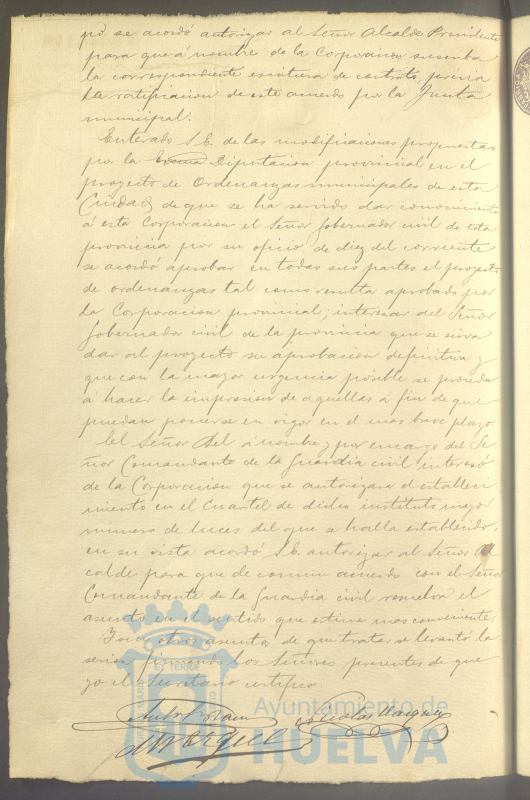 po se acordó autorizar al Señor Alcalde Presidente
para que á nombre de la Corporacion suscriba
la correspondiente escritura de contrato, prévia
la ratificacion de este acuerdo por la Junta
municipal.
Enterado S.E. de las modificaciones propuestas
por la Excma Diputacion provincial en el
proyecto de Ordenanzas municipales de esta
Ciudad, de que se ha servido dar conocimiento
á esta Corporacion el Señor Gobernador civil de esta
provincia por su oficio de diez del corriente
se acordó aprobar en todas sus partes el proyecto
de ordenanzas tal como resulta aprobado por
la Corporacion provincial; interesar del Señor
Gobernador civil de la provincia que se sirva
dar al proyecto su aprobacion definitiva y
que con la mayor urgencia posible se proceda
á hacer la impresion de aquellas á fin de que
puedan ponerse en vigor en el mas breve plazo.
El Señor á nombre y por encargo del Se
ñor Comandante de la Guardia civil interesó
de la Corporacion que se autorizara el estableci
miento en el Cuartel de dicho instituto mayor
numero de luces del que se halla establecido,
en su vista acordó S.E. autorizar al Señor Al
calde para que de comun acuerdo con el Señor
Comandante de la Guardia civil resuelva el
asunto en el sentido que estime mas conveniente.
otros asuntos de que tratar se levantó la
sesion firmando los Señores presentes de que
yo el Secretario certifico.
Nicolas Vazquez
Ayuntamiento de
HUELVA